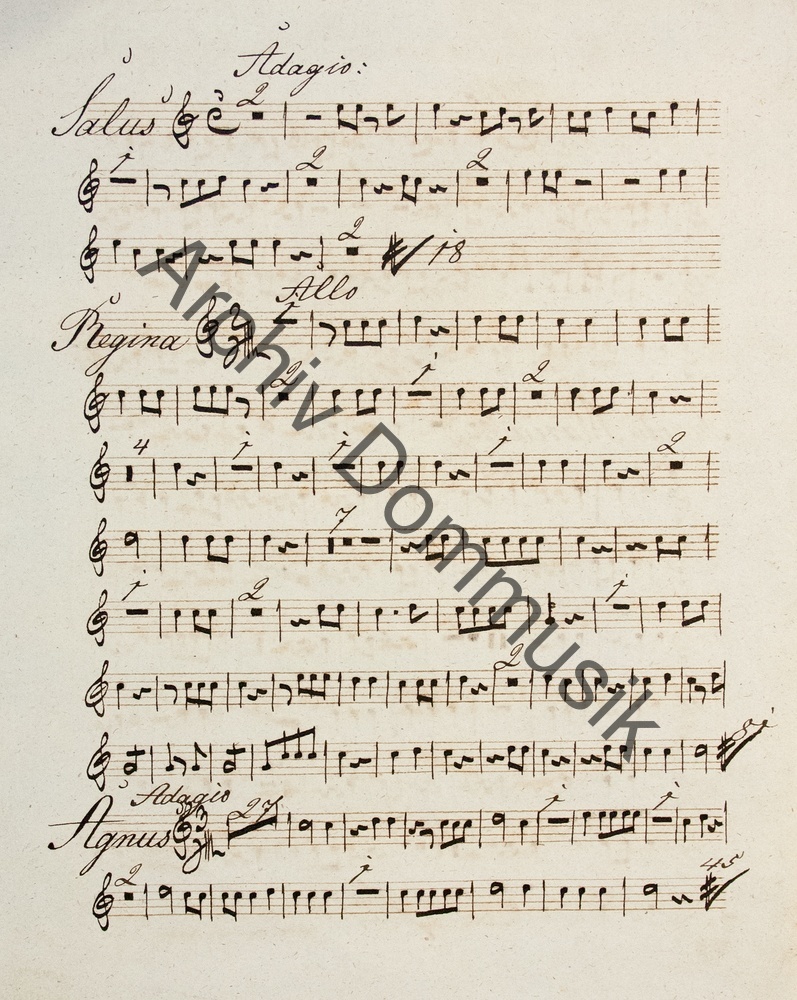 Adagio:
Salus 2
1 2 2
2 18
Allo
Regina
2 1 2
4 1 1 1 2
7
1 2 1
2
81
Adagio
Agnus 27 1 1
2 1 45
Archiv Dommusik